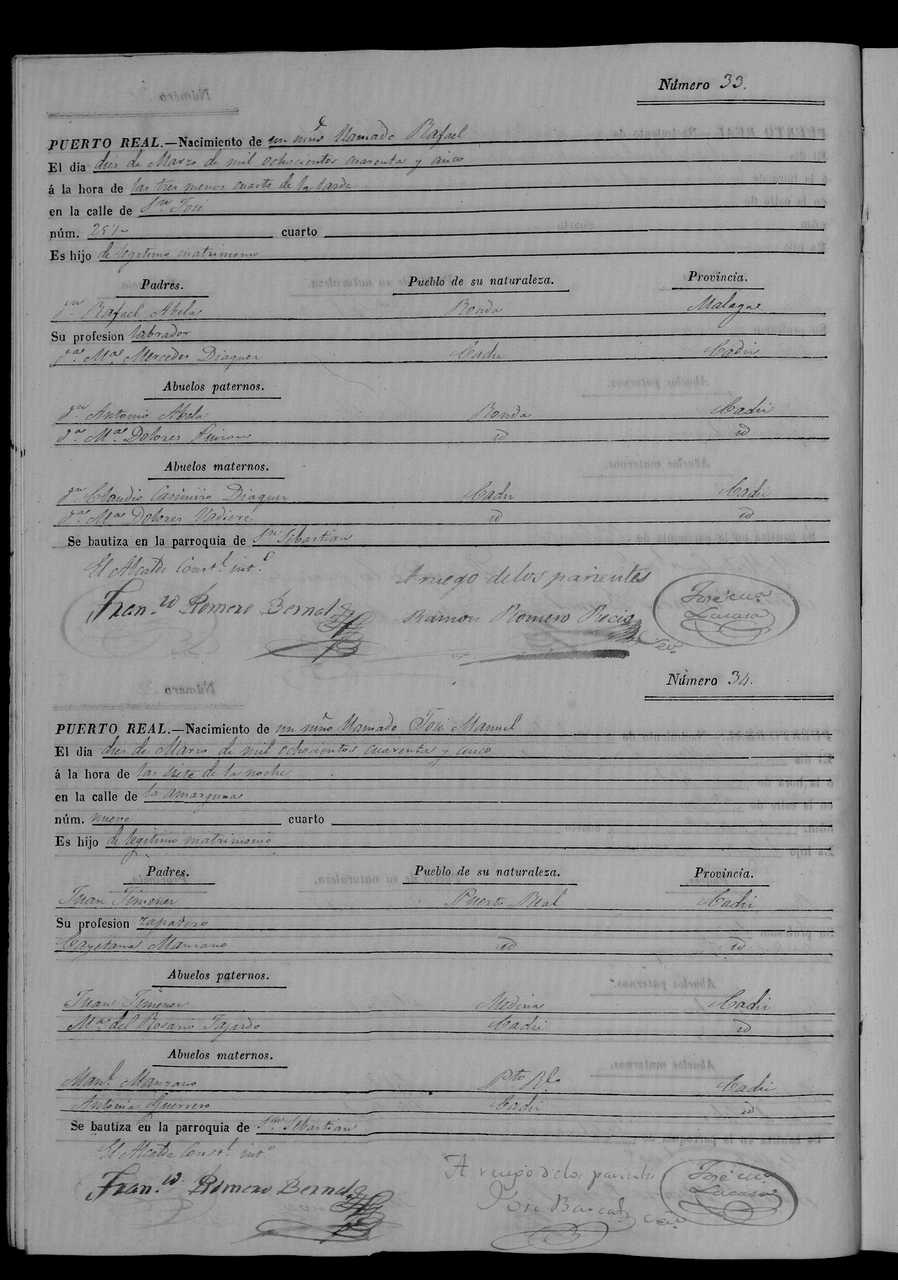 Número 33.
PUERTO REAL.—Nacimiento de un niño llamado Rafael
El dia diez de Marzo de mil ochocientos cuarenta y cinco
á la hora de las tres menos cuarto de la tarde
en la calle de Sn José
núm. cuarto
Es hijo de legitimo matrimonio
Padres. Pueblo de su naturaleza. Provincia.
Dn Rafael Abela Ronda Malaga
Su profesion labrador
Da Ma Mercedes Diaquer Cadiz Cadiz
Abuelos paternos.
Dn Antonio Abela Ronda Cadiz
Da Ma Dolores id id
Abuelos maternos.
Dn Claudio Casimiro Diaquer Cadiz Cadiz
Da Ma Dolores id id
Se bautiza en la parroquia de Sn Sebastian
El Alcalde Constl intº
A ruego de los parientes
Franco Romero Bernal
Ramon Romero
José
Número 34.
PUERTO REAL.—Nacimiento de un niño llamado José Manuel
El dia diez de Marzo de mil ochocientos cuarenta y cinco
á la hora de las siete de la noche
en la calle de la Amargura
núm. nueve cuarto
Es hijo de legitimo matrimonio
Padres. Pueblo de su naturaleza. Provincia.
Juan Jimenez Puerto Real Cadiz
Su profesion zapatero
Cayetana Manzano id id
Abuelos paternos.
Juan Jimenez Medina Cadiz
Ma del Rosario Fajardo Cadiz id
Abuelos maternos.
Manl Manzano Pto Rl Cadiz
Antonia Guerrero Cadiz id
Se bautiza en la parroquia de Sn Sebastian
El Alcalde Constl intº
A ruego de los parientes
Franco Romero Bernal
José
José